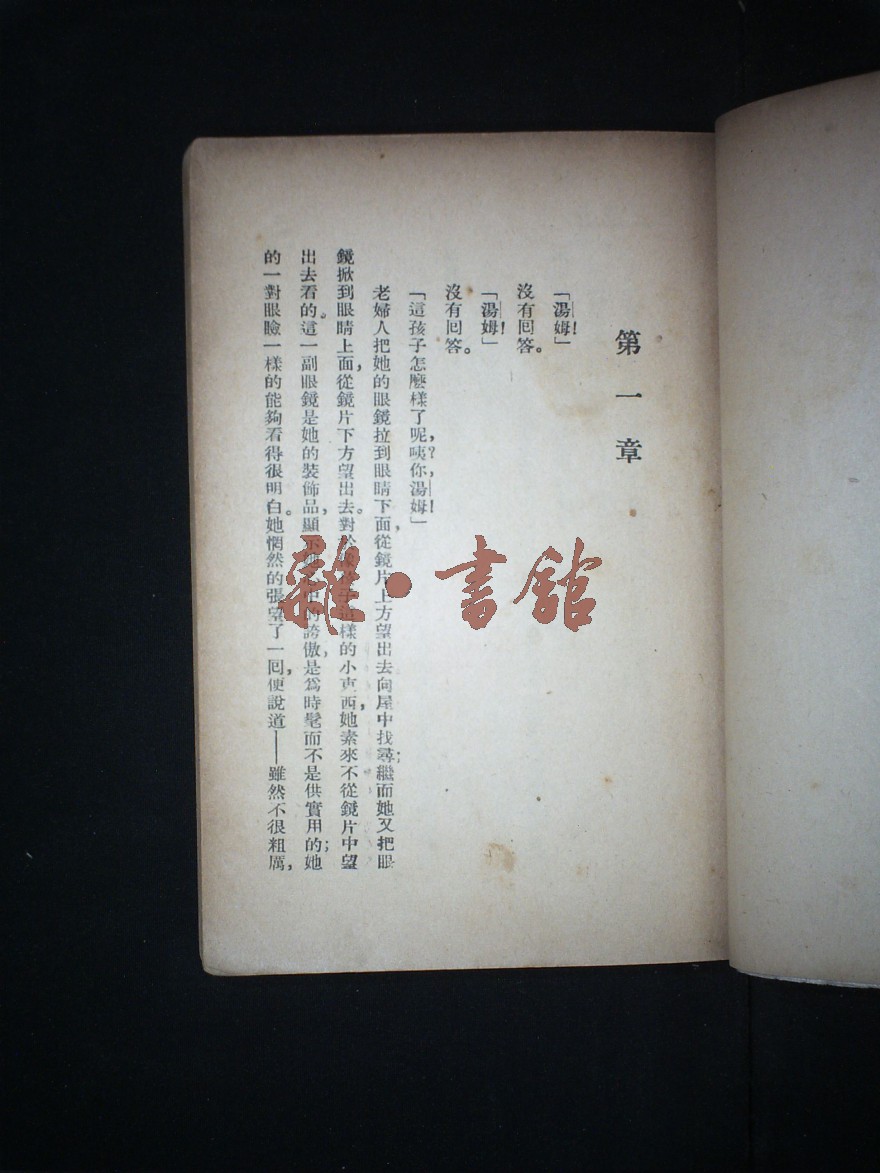 第一章
「湯姆!」
沒有回答。
「湯姆!」
沒有回答。
「這孩子怎麼樣了呢,咦?你,湯姆!」
老婦人把她的眼鏡拉到眼睛下面,從鏡片上方望出去向屋中找尋;繼而她又把眼
鏡掀到眼睛上面,從鏡片下方望出去。對於像孩子這樣的小東西,她素來不從鏡片中望
出去看的。這一副眼鏡是她的裝飾品,顯示她心中的誇傲,是爲時髦而不是供實用的;她
的一對眼瞼一樣的能夠看得很明白。她惘然的張望了一回,便說道——雖然不很粗厲,
雜·書館